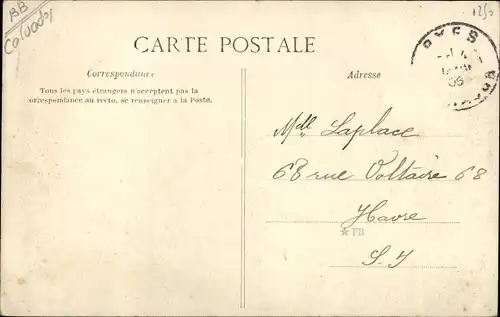 BB
Calvados
1252
CARTE POSTALE
Correspondance
Tous les pays étrangers n'acceptent pas la
correspondance au recto, se renseigner à la Poste.
Adresse
06
Mdlle Laplace
68 rue Voltaire 68
Havre
☆FB
S. I